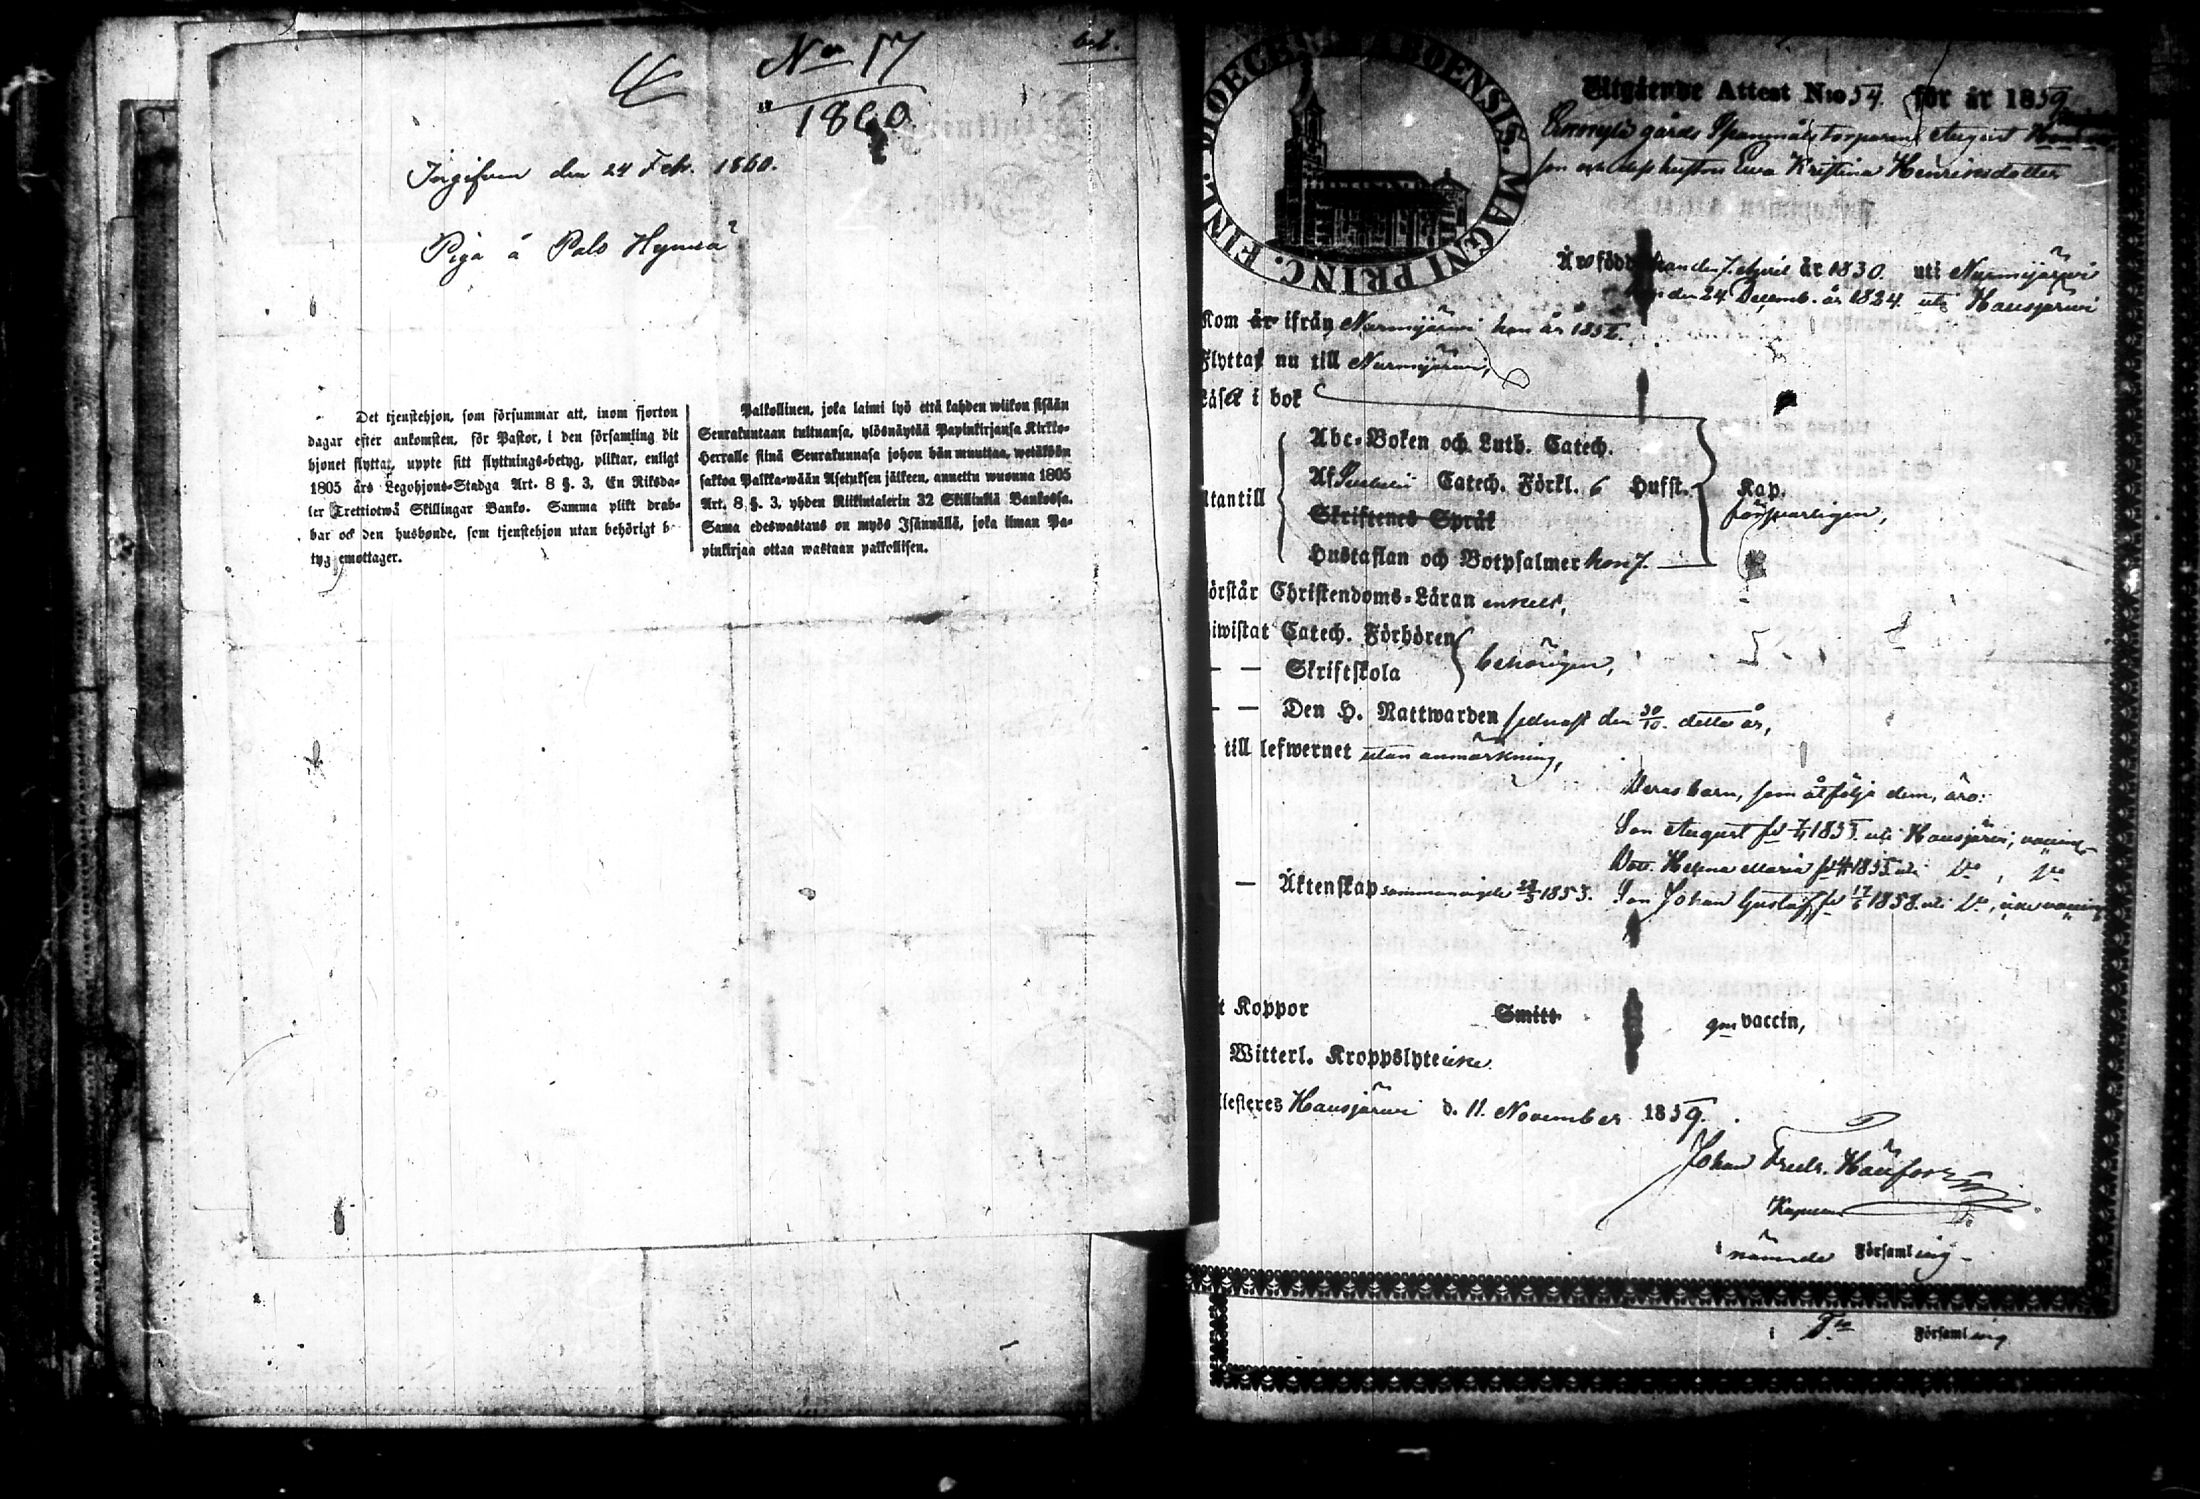 62.
No 17
1860
Ingifven den 24 Feb. 1860.
Piga å Palo Hynnä
Det tjenstehjon, som försummar att, inom fjorton
dagar efter ankomsten, för Pastor, i den församling dit
hjonet flyttat, uppte sitt flyttnings-betyg, pliktar, enligt
1805 års Legohjons-Stadga Art. 8 §. 3, En Riksda-
ler Trettiotwå Skillingar Banko. Samma plikt drab-
bar ock den husbonde, som tjenstehjon utan behörigt b
tyg emottager.
Palkollinen, joka laimi lyö että kahden wiikon sisään
Seurakuntaan tultuansa, ylösnäytää Papinkirjansa Kirkko-
Herralle siinä Seurakunnasa johon hän muuttaa, wetäköön
sakkoa Palkka-wään Asetuksen jälkeen, annettu wuonna 1805
Art. 8 §. 3, yhden Riikintalerin 32 Skillinkiä Bankossa.
Sama edeswastaus on myös Isännällä, joka ilman Pa-
pinkirjaa ottaa wastaan palkollisen.
DIOECES. ABOENSIS. MAGNI PRINC. FINL.
Utgående Attest No 54. för år 1859
gårds Spanmåls torparen August
son och dess hustru Ewa Kristina Henriksdotter
Är född han den 7. April år 1830. uti Nurmijärwi
hon den 24 Decemb. år 1824. uti Hausjärwi
Kom år ifrån Nurmijärwi han år 185
Flyttar nu till Nurmijärwi,
Läser i bok
Abc-Boken och Luth. Catech.
Utantill Af Catech. Förkl. 6 Hufst. Kap.
Skriftenes Språk försvarligen,
Hustaflan och Botpsalmer hon 7.
örstår Christendoms-Läran enkelt,
iwistat Catech. Förhören
— — Skriftskola behörigen,
— — Den H. Nattwarden sednast den 30/10. detta år,
till lefwernet utan anmärkning,
Deras barn, som åtfölja dem, äro:
Son August fd 7/4 1853. uti Hausjärwi, vaccin.
Dott. Helena Maria fd 1855. uti Do, Do
— Äktenskap sammanvigde 28/3 1853. Son Johan Gustaf fd 17/6 1858. uti Do, icke vaccin.
t Koppor Smitt gm vaccin,
Witterl. Kroppslyte icke.
llesteres Hausjärwi d. 11. November 1859.
Johan Fredr.
Kapellan
i nämnde Församling
i Do Församling